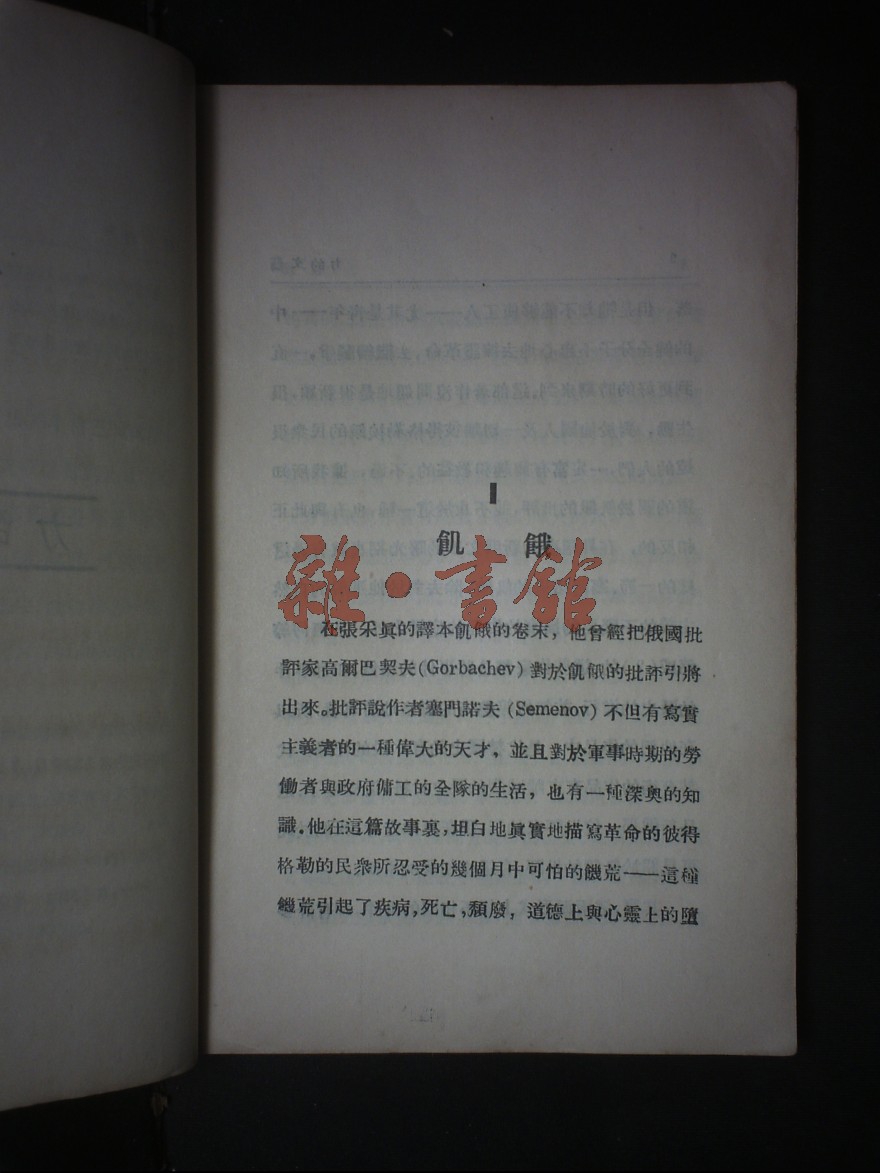 I
飢餓
雜·書館
在張采眞的譯本飢餓的卷末，他曾經把俄國批
評家高爾巴契夫(Gorbachev)對於飢餓的批評引將
出來。批評說作者塞門諾夫(Semenov)不但有寫實
主義者的一種偉大的天才，並且對於軍事時期的勞
働者與政府傭工的全隊的生活，也有一種深奧的知
識。他在這篇故事裏，坦白地眞實地描寫革命的彼得
格勒的民衆所忍受的幾個月中可怕的饑荒——這種
饑荒引起了疾病，死亡，頹廢，道德上與心靈上的墮